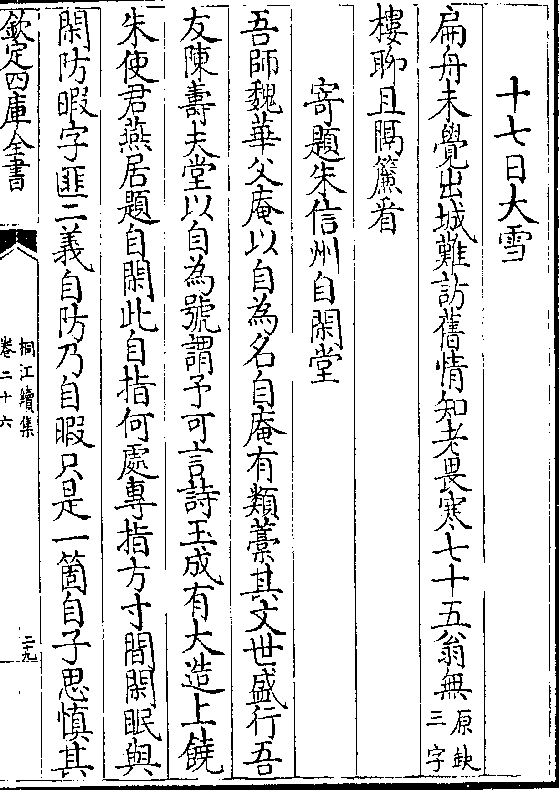 十七日大雪
扁舟未覺出城難訪舊情知老畏寒七十五翁無原缺三字
樓聊且隔簾看
寄題朱信州自閑堂
吾師魏華父庵以自為名自庵有類藁其文世盛行吾
友陳壽夫堂以自為號謂予可言詩玉成有大造上饒
朱使君燕居題自閑此自指何處專指方寸間閑眠與
閑防暇字匪二義自防乃自暇只是一箇自子思慎其
欽定四庫全書
桐江續集
卷二十六
二九